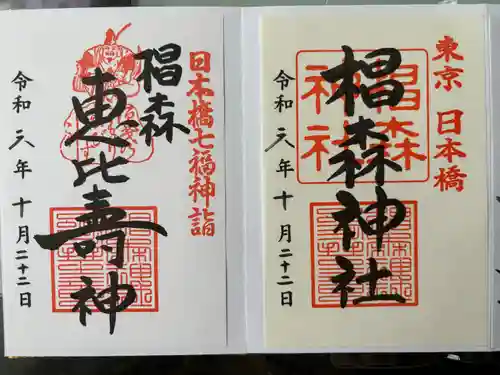 東京 日本橋
椙森
神社
椙森神社
令和六年十月二十二日
日本橋七福神詣
椙森
恵比壽神
令和六年十月二十二日